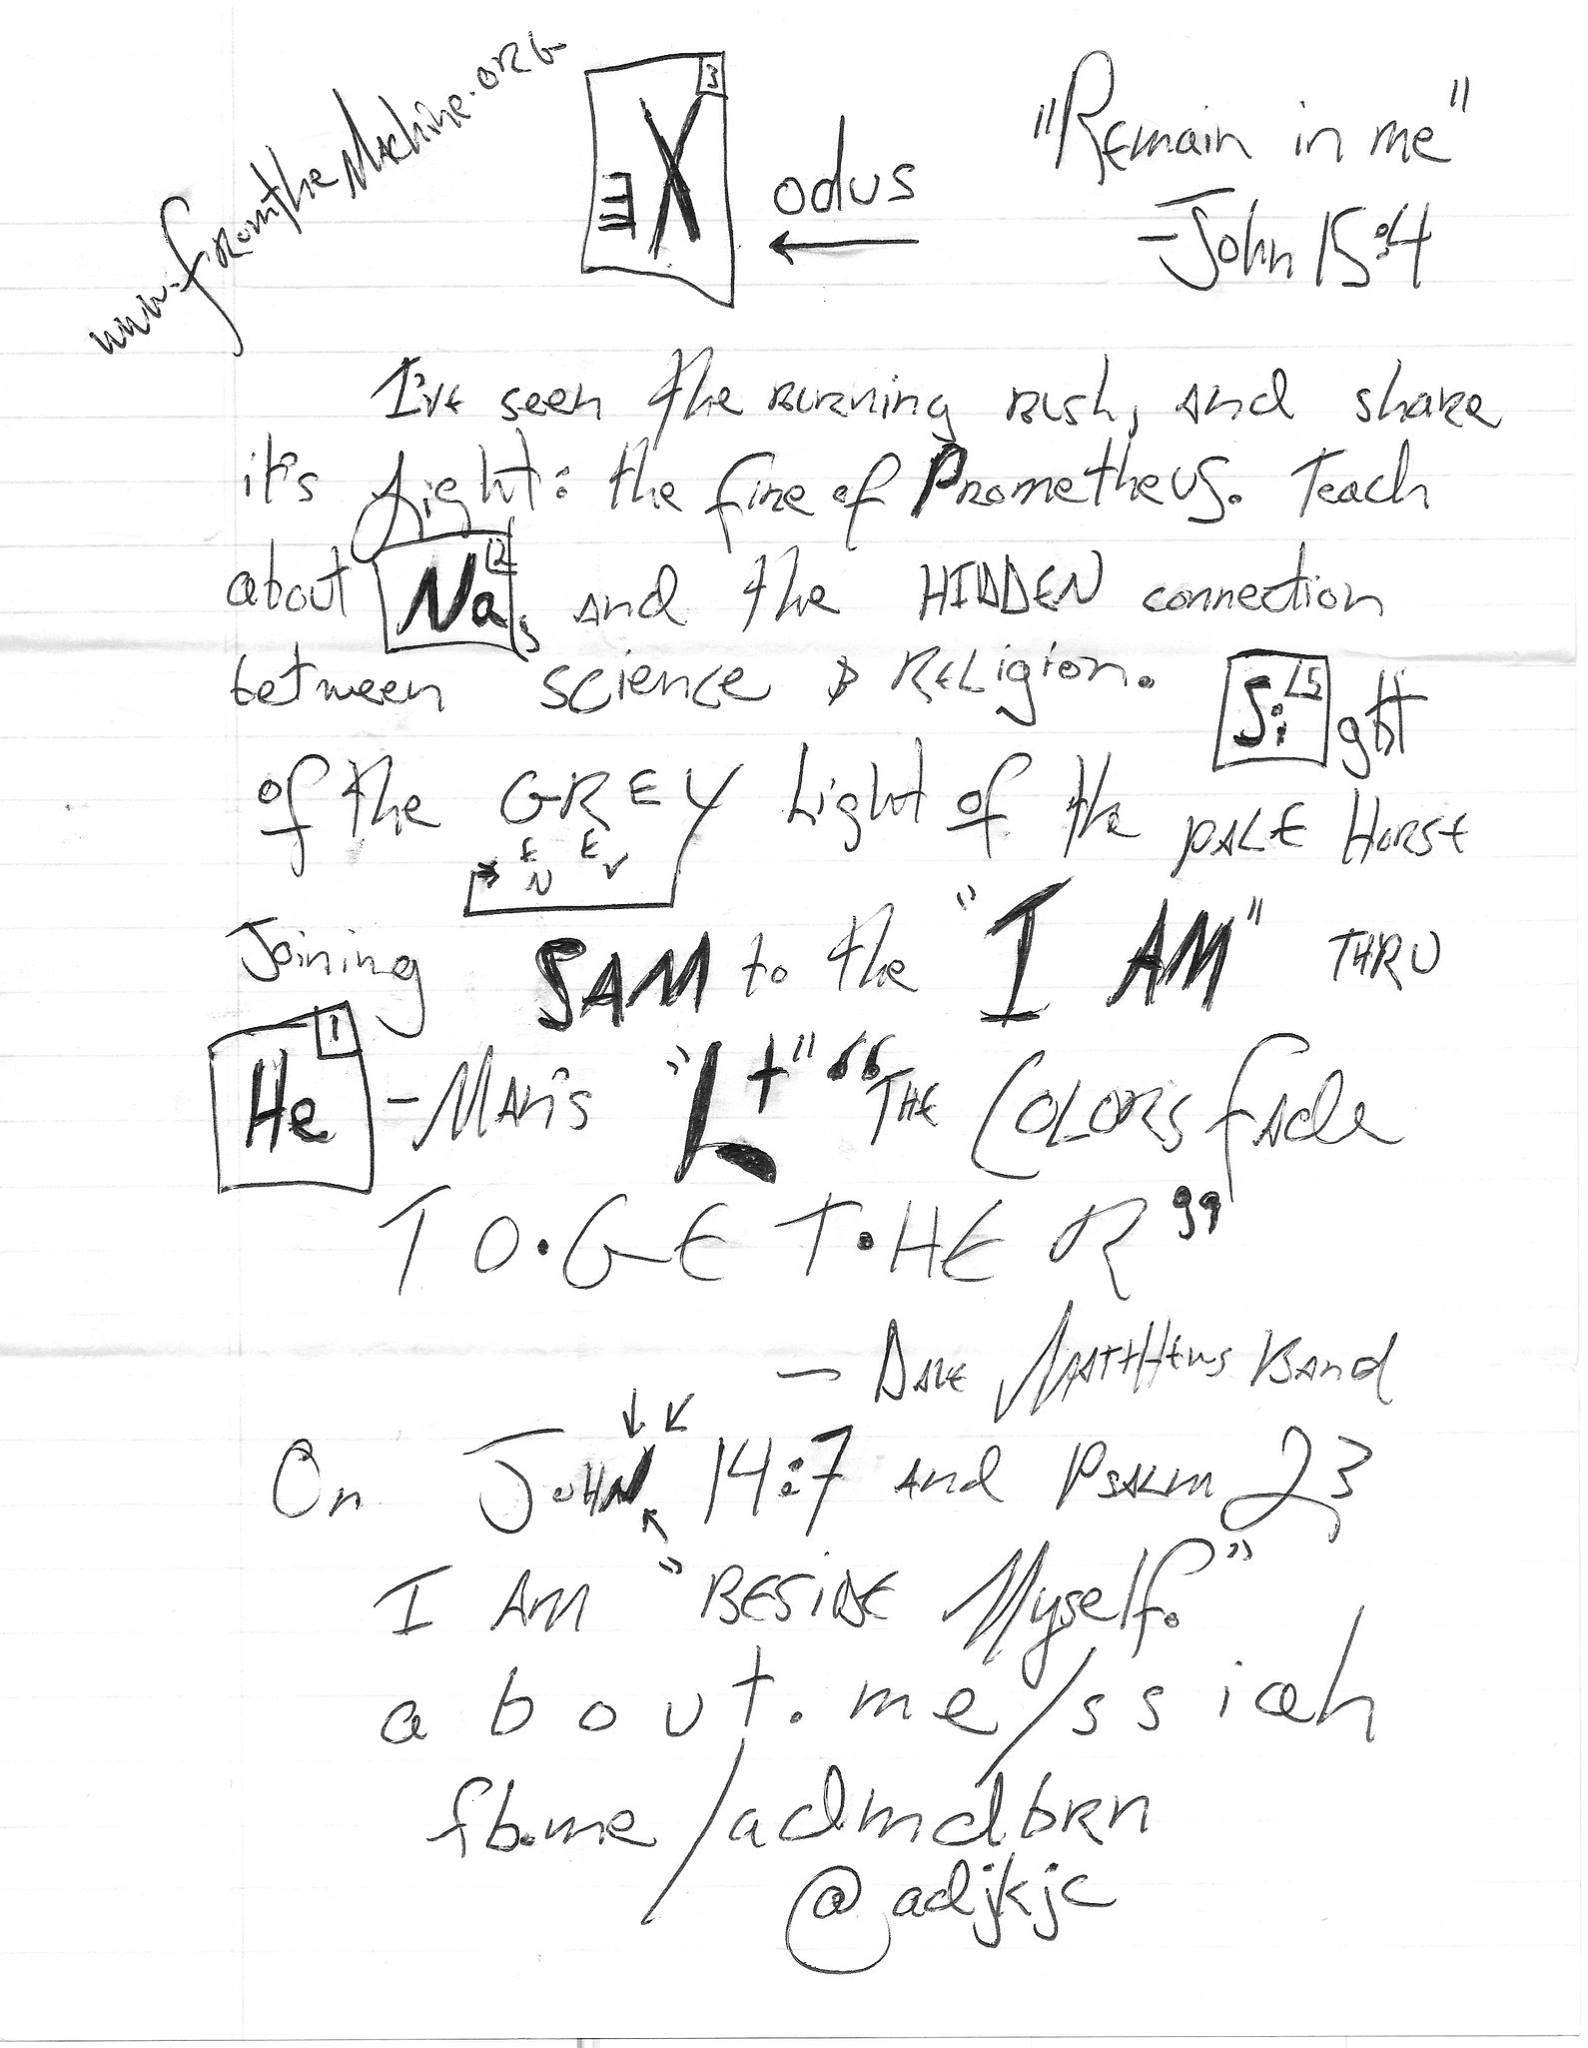 www.fromtheMachine.org
3
EX odus
"Remain in me"
-John 15:4
I've seen the Burning Bush, and share
it's Light: the fire of Prometheus. Teach
about Na, and the HIDDEN connection
12
between science & Religion. Si ght
of the GREY Light of the pALE Horse
E E
N V
Joining SAM to the "I AM" THRU
1
He -Man's "Lt" "THE COLORS fade
TO•GET•HER"
- Dave Matthews Band
On JOHN 14:7 and Psalm 23
I AM "BESIDE Myself."
about.me/ssiah
fb.me/admdbrn
@adjkjc